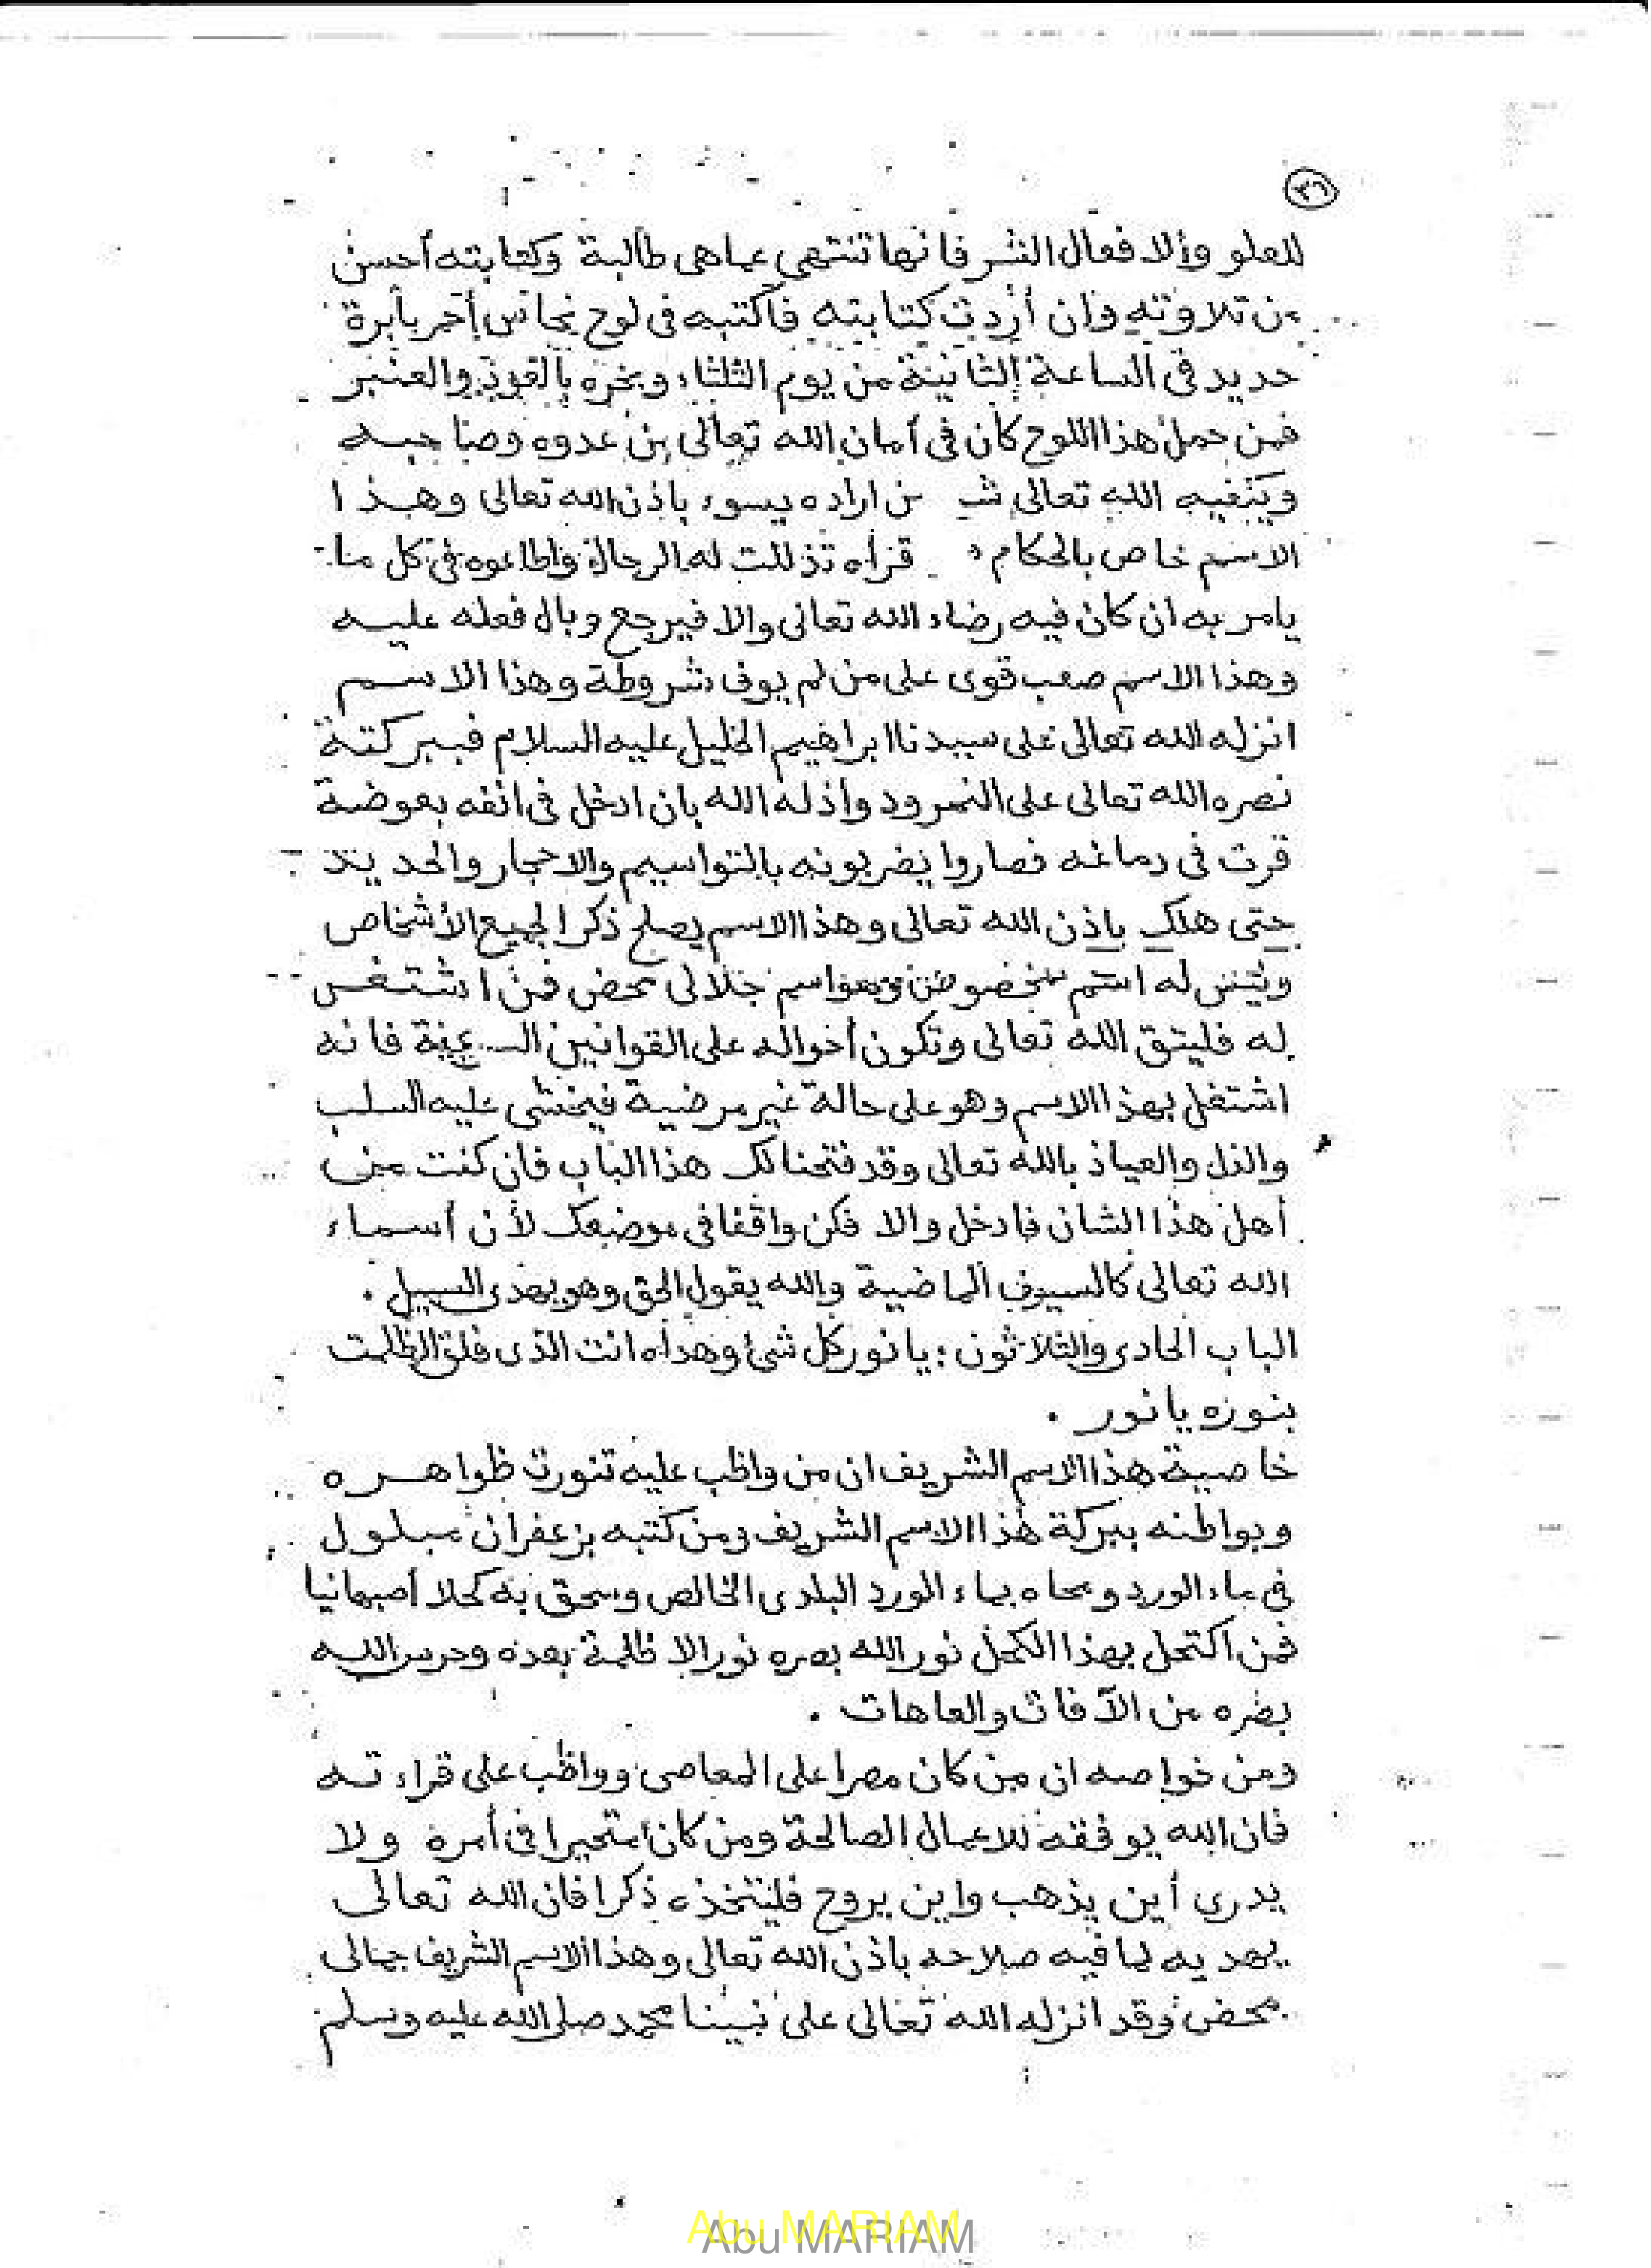 ٣٦
للعلو والا فعال الشر فانها تنتهى عماهى طالبة وكتابته أحسن
من تلاوته وان أردت كتابته فاكتبه فى لوح نحاس أحمر بأبرة
حديد فى الساعة الثانية من يوم الثلثاء وبخره بالعود والعنبر
فمن حمل هذا اللوح كان فى أمان الله تعالى من عدوه وصاحبه
ويكفيه الله تعالى من اراده بسوء باذن الله تعالى وهذا
الاسم خاص بالحكام قرأه تذللت له الرجال واطاعوه فى كل ما
يامر به ان كان فيه رضاء الله تعالى والا فيرجع وبال فعله عليه
وهذا الاسم صعب قوى على من لم يوف شروطة وهذا الاسم
انزله الله تعالى على سيدنا ابراهيم الخليل عليه السلام فببركتة
نصره الله تعالى على النمرود واذله الله بان ادخل فى انفه بعوضة
قرت فى دماغه فصاروا يضربونه بالتواسيم والاحجار والحديد
حتى هلك باذن الله تعالى وهذا الاسم يصلح ذكرا لجميع الأشخاص
وليس له اسم مخصوص وهو اسم جلالى محض فمن اشتغل
له فليتق الله تعالى وتكون أحواله على القوانين فانه
اشتغل بهذا الاسم وهو على حالة غير مرضية فيخشى عليه السلب
والذل والعياذ بالله تعالى وقد فتحنا لك هذا الباب فان كنت من
أهل هذا الشان فادخل والا فكن واقفا فى موضعك لأن أسماء
الله تعالى كالسيوف الماضية والله يقول الحق وهو يهدى السبيل .
الباب الحادى والثلاثون : يا نور كل شئ وهداه انت الذى فلق الظلمت
بنوره يا نور .
خاصية هذا الاسم الشريف ان من واظب عليه تنورت ظواهره
وبواطنه ببركة هذا الاسم الشريف ومن كتبه بزعفران مبلول
فى ماء الورد ومحاه بماء الورد البلدى الخالص وسحق به كحلا أصبهانيا
فمن اكتحل بهذا الكحل نور الله بصره نورا لا ظلمة بعده وحرس الله
بصره من الآفات والعاهات .
ومن خواصه ان من كان مصرا على المعاصى وواظب على قراءته
فان الله يوفقه للاعمال الصالحة ومن كان متحيرا فى أمره ولا
يدرى أين يذهب واين يروح فليتخذه ذكرا فان الله تعالى
يهديه لما فيه صلاحه باذن الله تعالى وهذا الاسم الشريف جمالى
محض وقد انزله الله تعالى على نبينا محمد صلى الله عليه وسلم
Abu MARIAM